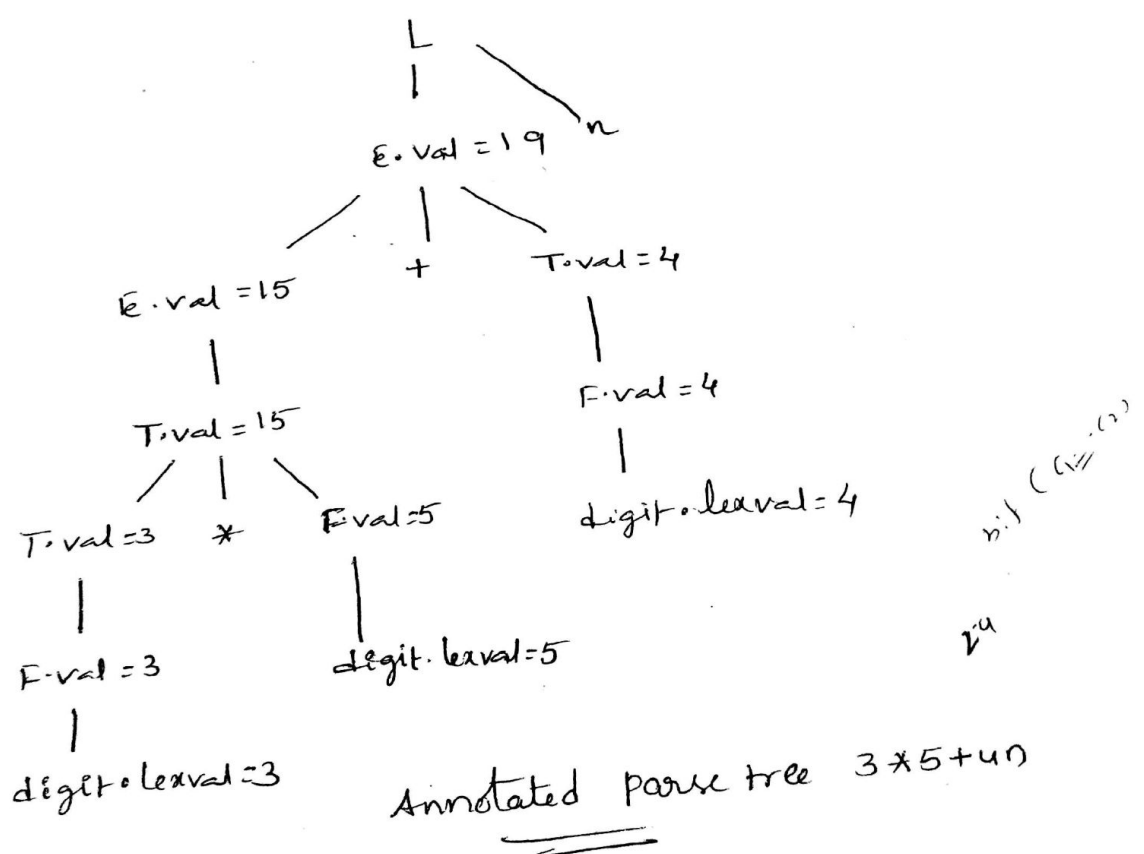 L
E.val = 19 n
E.val = 15 + T.val = 4
T.val = 15 F.val = 4
T.val = 3 * F.val = 5 digit.lexval = 4
F.val = 3 digit.lexval = 5
digit.lexval = 3
Annotated parse tree 3*5+4n